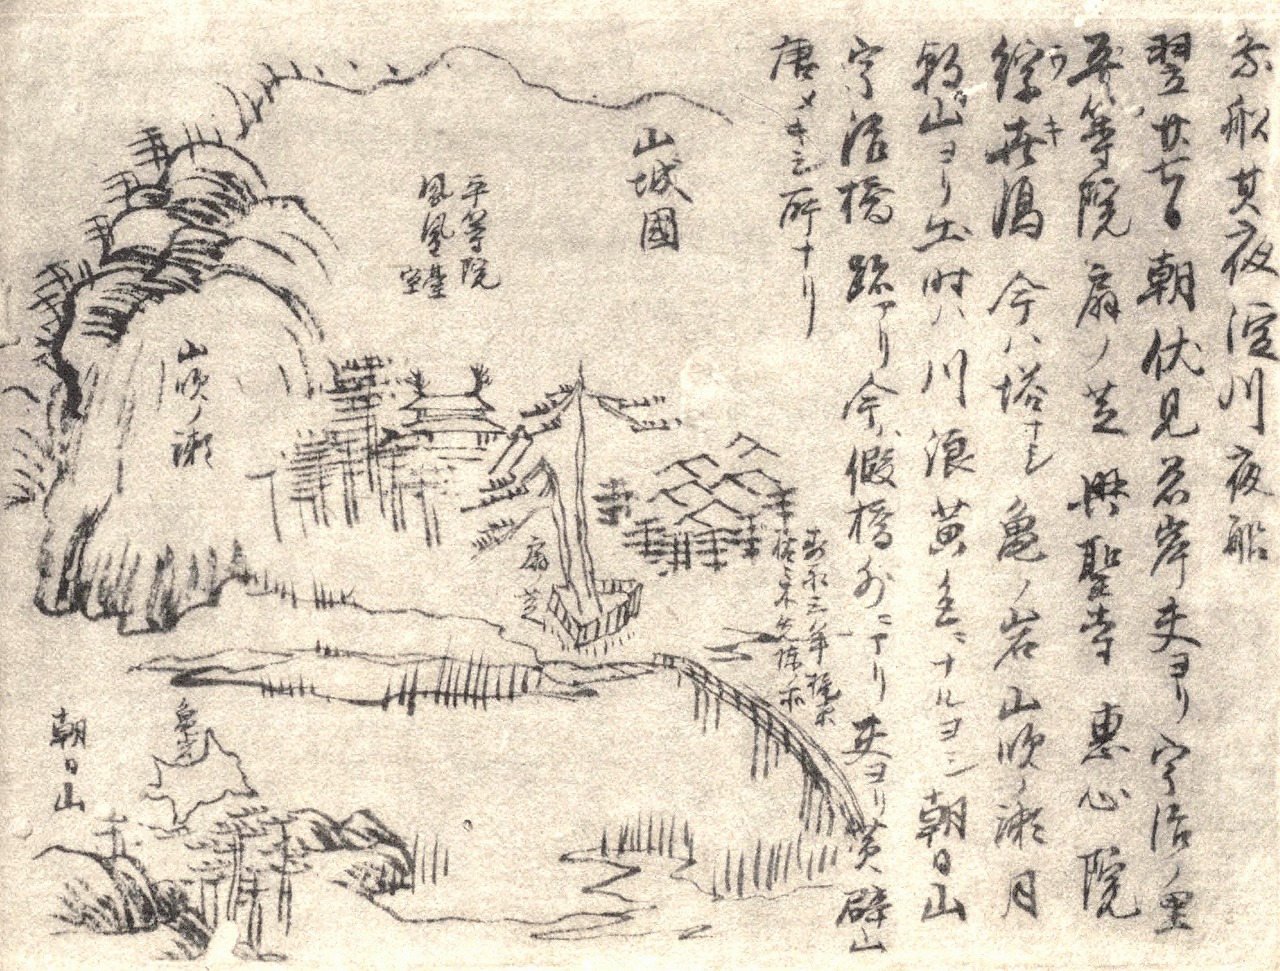 乗船其夜淀川夜船
翌廿七日朝伏見着岸夫ヨリ宇治ノ里
平等院扇ノ芝興聖寺恵心院
ウキ
浮舟島今ハ塔ナシ亀ノ岩山吹ノ瀬月
朝山ヨリ出ル時ハ川浪黄色ニナルヨシ朝日山
宇治橋跡アリ今ハ假橋外ニアリ夫ヨリ黄檗山
唐メキシ所ナリ
山城國
平等院
鳳凰臺
山吹ノ瀬
扇ノ芝
亀岩
朝日山